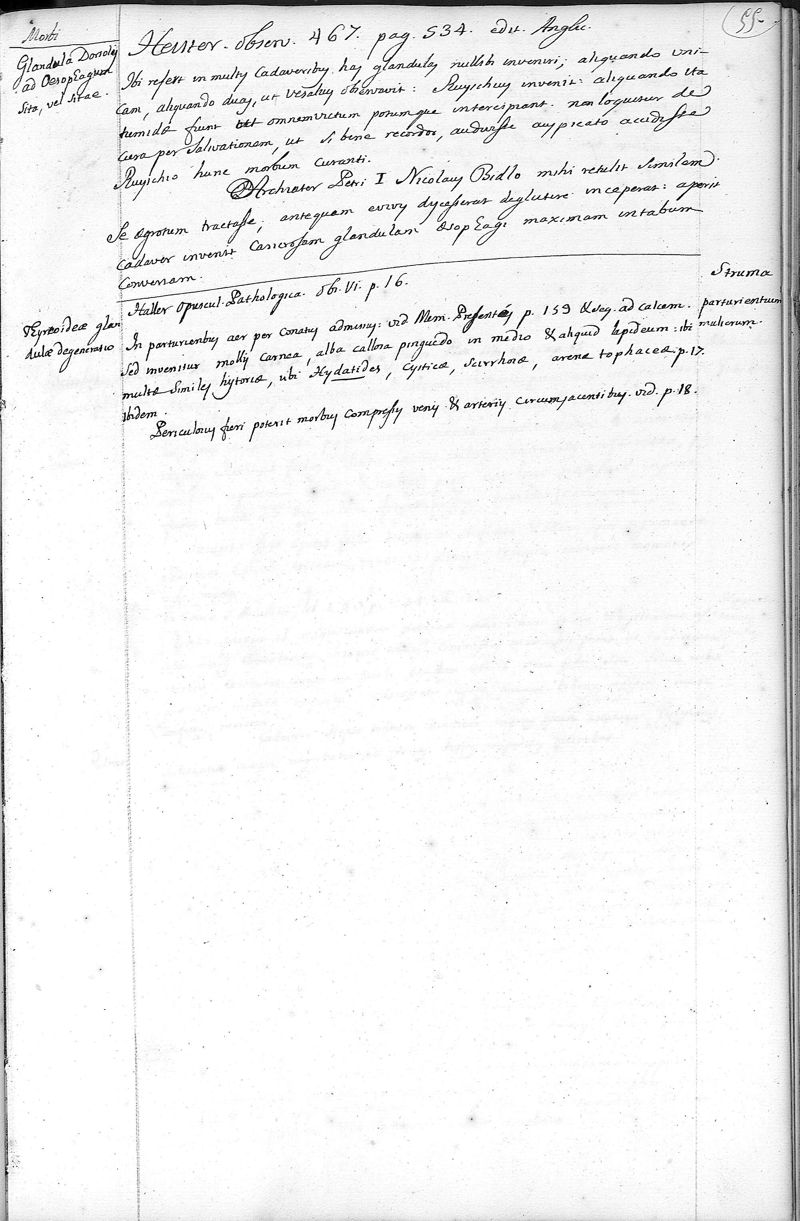 55.
Morbi
Glandula Dorsales
ad OesopEagum
sita, vel sitae.
Heister. observ. 467. pag. 534. edit. Anglic.
Ibi refert in multis Cadaveribus has glandulas nullibi inveniri; aliquando uni-
cam, aliquando duas, ut Vesalius observavit: Ruyschius invenit: aliquando ita
tumidæ fiunt ut omnem victum potumque intercipiant. non loquitur de
cura per Salivationem, ut si bene recordor, audivisse auspicato accidisse
Ruyschio hunc morbum curanti.
Archiater Petri I Nicolaus Bidlo mihi retulit similem
se ægrotum tractasse; antequam civis dycesserat deglutire inceperat: aperit
cadaver invenit Cancrosam glandulam œsopEagi maximam in tabum
conversam.
Haller opuscul. Pathologica. obs. VI. p. 16.
Struma
parturientium
mulierum.
TEyreoideæ glan
dulæ degeneratio
In parturientibus aer per conatus admissus: vid Mem. Presentés p. 159 & seq. ad calcem.
sed invenitur mollis carnea, alba callosa pinguedo in medio & aliquid lapideum: ibi
multæ similes hystoriæ, ubi Hydatides, Cysticæ, Scirrhosæ, arenæ tophaceæ p. 17.
ibidem.
Periculosus fieri poterit morbus compressis venis & arteriis circumjacentibus. vid. p. 18.